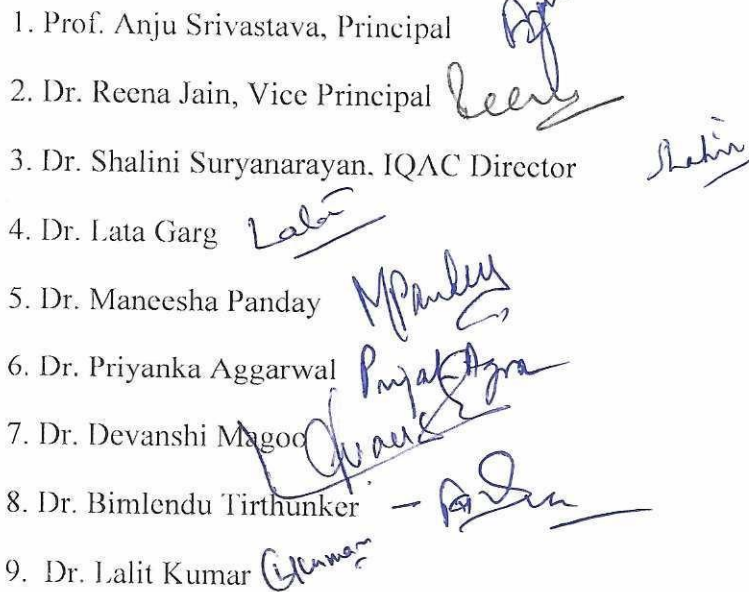 1. Prof. Anju Srivastava, Principal
2. Dr. Reena Jain, Vice Principal
3. Dr. Shalini Suryanarayan. IQAC Director Shalini
4. Dr. Lata Garg Lata
5. Dr. Maneesha Panday MPandey
6. Dr. Priyanka Aggarwal
7. Dr. Devanshi Magoo
8. Dr. Bimlendu Tirthunker –
9. Dr. Lalit Kumar LKumar